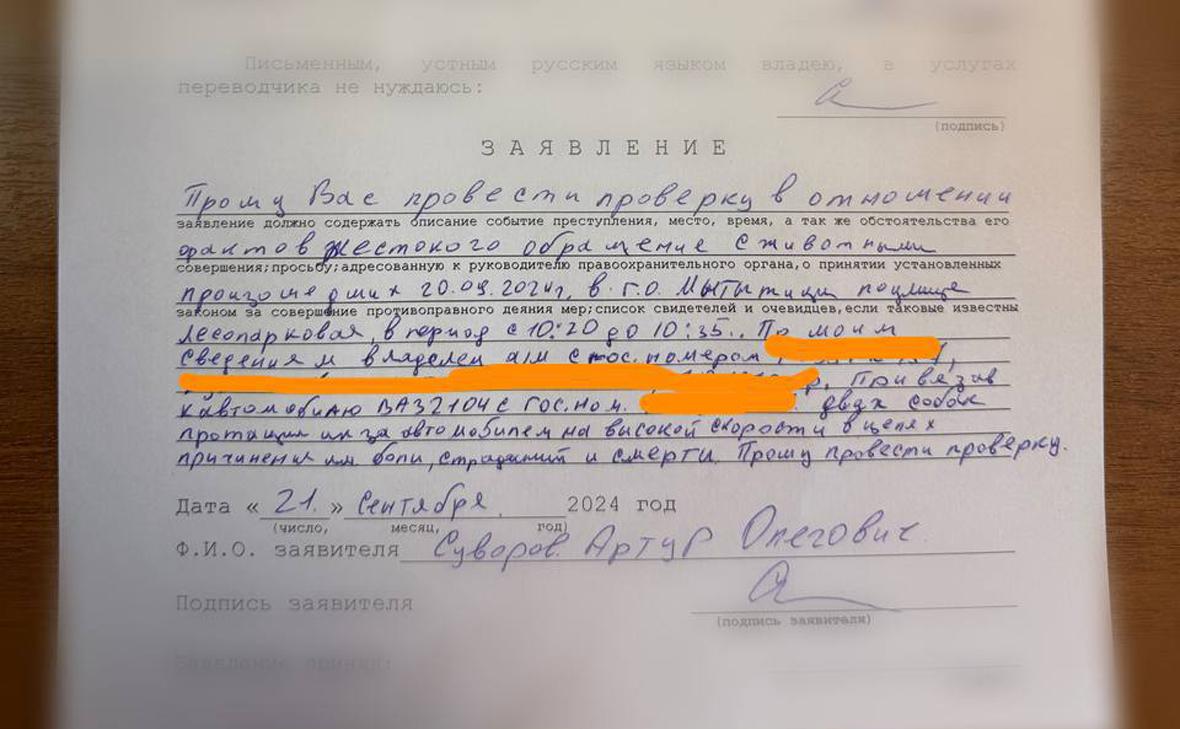 Письменным, устным русским языком владею, в услугах
переводчика не нуждаюсь:
(подпись)
ЗАЯВЛЕНИЕ
Прошу Вас провести проверку в отношении
заявление должно содержать описание событие преступления, место, время, а так же обстоятельства его
фактов жестокого обращение с животными
совершения;просьбу;адресованную к руководителю правоохранительного органа,о принятии установленных
произошедших 20.09.2024г. в г.о. Мытытищи поулице
законом за совершение противоправного деяния мер;список свидетелей и очевидцев,если таковые известны
лесопарковая, в период с 10:20 до 10:35.. По моим
сведениям владелец а/м с гос.номером
Привязав
к автомобилю ВАЗ2104 с гос.ном. двух собак
протащил их за автомобилем на высокой скорости в целях
причинения им боли, страданий и смерти. Прошу провести проверку.
Дата « 21. » Сентября 2024 год
(число, месяц, год)
Ф.И.О. заявителя Суворов Артур Олегович
Подпись заявителя
(подпись заявителя)